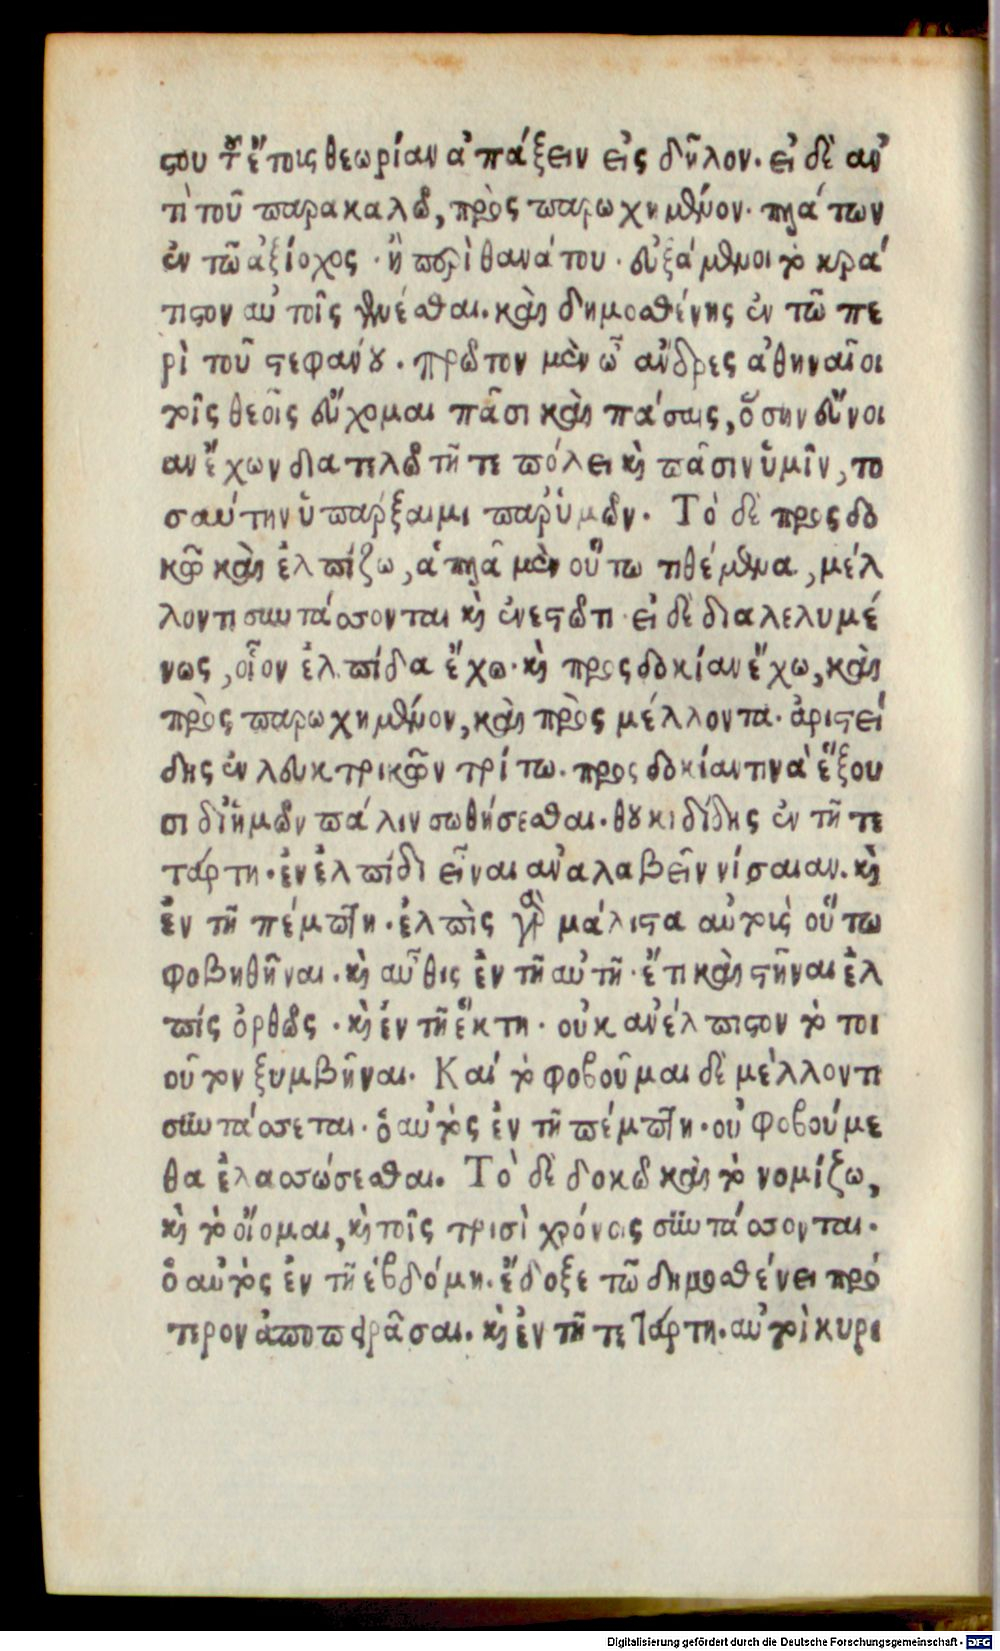 στου τοῦ ἔτους θεωρίαν ἀπάξειν εἰς δῆλον. εἰ δὲ ἀν
τὶ τοῦ παρακαλῶ, πρὸς παρωχημένον. πλάτων
ἐν τῶ ἀξίοχος · ἢ περὶ θανάτου · εὐξάμενοι τὸ κρά
τιστον αὐτοῖς γενέσθαι. καὶ δημοσθένης ἐν τῶ πε
ρὶ τοῦ στεφάνου. πρῶτον μὲν ὦ ἄνδρες ἀθηναῖοι
τοῖς θεοῖς εὔχομαι πᾶσι καὶ πάσαις, ὅσην εὔνοι
αν ἔχων διατελῶ τῆ τε πόλει καὶ πᾶσιν ὑμῖν, το
σαύτην ὑπάρξαι μοι παρ' ὑμῶν. Τὸ δὲ προςδο
κῶ καὶ ἐλπίζω, ἁπλᾶ μὲν οὕτω τιθέμενα, μέλ
λοντι συντάσσονται καὶ ἐνεστῶτι · εἰ δὲ διαλελυμέ
νως, οἷον ἐλπίδα ἔχω · καὶ προςδοκίαν ἔχω, καὶ
πρὸς παρωχημένον, καὶ πρὸς μέλλοντα. ἀριστεί
δης ἐν λευκτρικῶν τρίτω. προςδοκίαν τινὰ ἕξου
σι δι' ἡμῶν πάλιν σωθήσεσθαι. θουκιδίδης ἐν τῆ τε
τάρτη. ἐν ἐλπίδι εἶναι ἀναλαβεῖν νίσαιαν. καὶ
ἐν τῆ πέμπτη. ἐλπὶς γὰρ μάλιστα αὐτοὺς οὕτω
φοβηθῆναι. καὶ αὖθις ἐν τῆ αὐτῆ · ἔτι καὶ στῆναι ἐλ
πίς ὀρθῶς · καὶ ἐν τῆ ἕκτη · οὐκ ἀνέλπιστον τὸ τοι
οῦτον ξυμβῆναι. Καί τὸ φοβοῦμαι δὲ μέλλοντι
συντάσσεται. ὁ αὐτὸς ἐν τῆ πέμπτη. οὐ φοβούμε
θα ἐλασσώσεσθαι. Τὸ δὲ δοκῶ καὶ τὸ νομίζω,
καὶ τὸ οἴομαι, καὶ τοῖς τρισὶ χρόνοις συντάσσονται.
ὁ αὐτὸς ἐν τῆ ἑβδόμη. ἔδοξε τῶ δημοσθένει πρό
τερον ἀποπειρᾶσαι. καὶ ἐν τῆ τετάρτη. αὐτοὶ κυρι
Digitalisierung gefördert durch die Deutsche Forschungsgemeinschaft - DFG